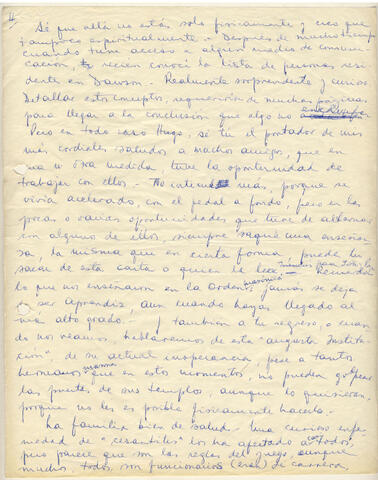 4
Sé que allá no estás solo físicamente y creo que
tampoco espiritualmente. - Después de mucho tiempo
cuando tuve acceso a algún medio de comuni-
cación, recién conocí la lista de personas resi
dente en Dawson. - Realmente sorprendente y curioso.
Detallar estos conceptos, requeriría de muchas páginas
para llegar a la conclusión que algo no
Pero en todo caso Hugo, sé tú el portador de mis
más cordiales saludos a muchos amigos, que en
una u otra medida tuve la oportunidad de
trabajar con ellos. - No interna mas, porque se
vivía acelerado, con el pedal a fondo, pero en las
pocas o varias oportunidades que tuve de alternar
con alguno de ellos, siempre saqué una enseñan
za, la misma que en cierta forma, puede tu
sacar de esta carta o quien la lea. - Recuerdo
lo que nos enseñaron en la Orden masónica jamás se deja
en ser Aprendiz, aun cuando hayas llegado al
más alto grado. - Y también a tu regreso, o cuan
do nos veamos, hablaremos de esta "augusta Institu-
ción", de su actual inoperancia, pese a tantos
hermanos que en estos momentos, no pueden golpear
las puertas de sus templos, aunque lo quisieran,
porque no les es posible físicamente hacerlo. -
La familia bien de salud. Una curiosa enfer
medad de "cesantitis" los ha afectado a todos,
pero parece que son las reglas del juego, aunque
mucho, todos, son funcionarios (eran) de carrera,